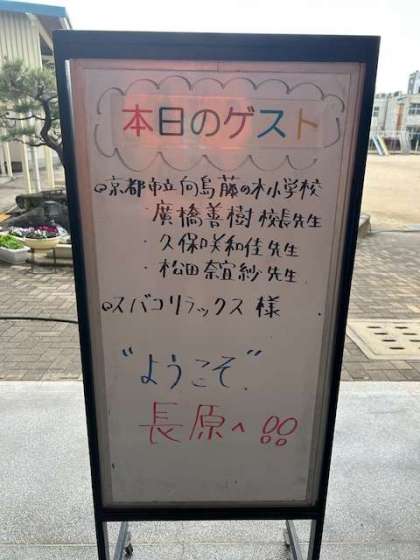 本日のゲスト
◎京都市立向島藤の木小学校
・廣橋善樹 校長先生
・久保美和佳 先生
・松田奈宜紗 先生
◎スバコリラックス 様
"ようこそ"
長原へ!!